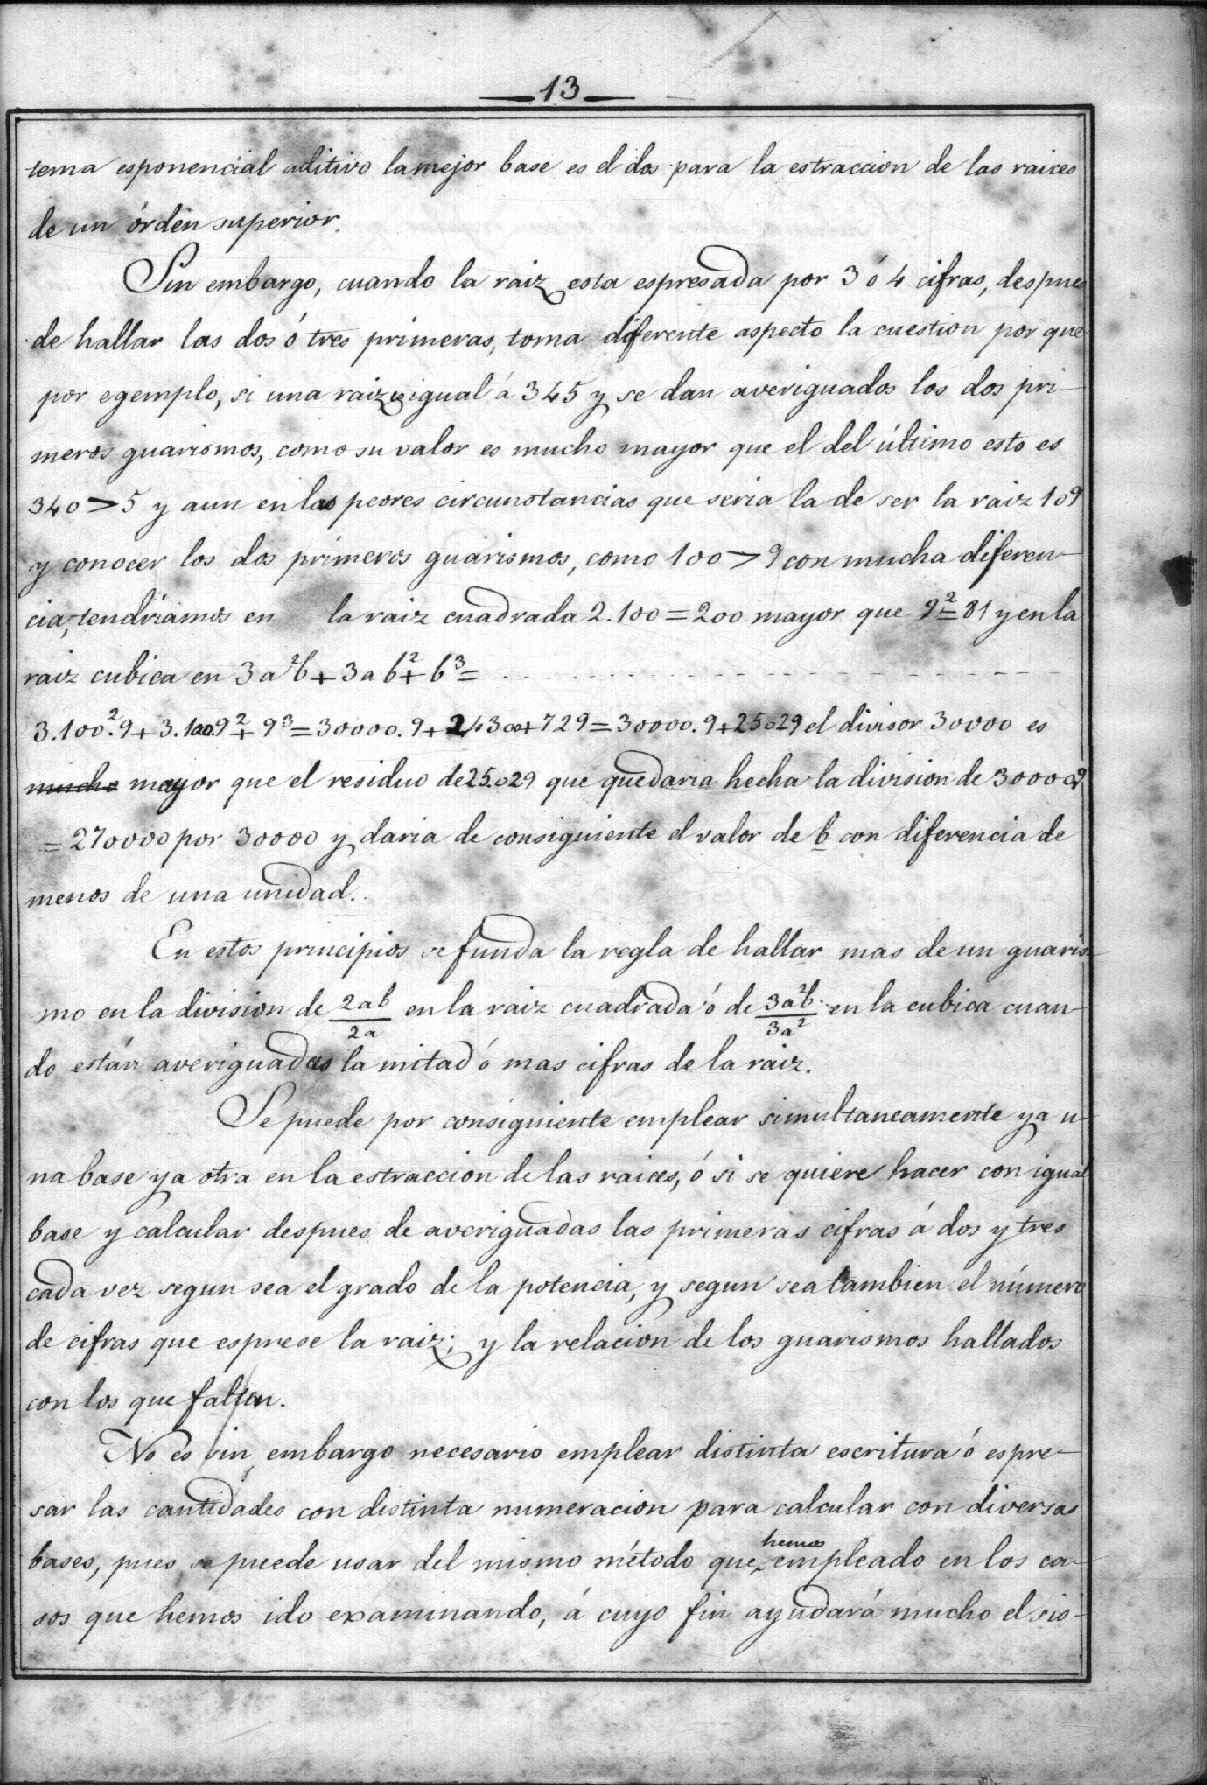 13
tema esponencial aditivo la mejor base es el dos para la estraccion de las raices
de un órden superior.
Sin embargo, cuando la raiz esta espresada por 3 ó 4 cifras, despues
de hallar las dos ó tres primeras, toma diferente aspecto la cuestion por que
por egemplo, si una raiz es igual á 345 y se dan averiguados los dos pri-
meros guarismos, como su valor es mucho mayor que el del último esto es
340>5 y aun en las peores circunstancias que seria la de ser la raiz 109
y conocer los dos primeros guarismos, como 100>9 con mucha diferen-
cia, tendriamos en la raiz cuadrada 2.100=200 mayor que 9²=81 y en la
raiz cubica en 3a²b+3ab²+b³=
3.100².9+3.100.9²+9³=30000.9+24300+729=30000.9+25029 el divisor 30000 es
mucho mayor que el residuo de 25.029 que quedaria hecha la division de 30000.9
=270000 por 30000 y daria de consiguiente el valor de b con diferencia de
menos de una unidad..
En estos principios se funda la regla de hallar mas de un guaris-
mo en la division de 2ab/2a en la raiz cuadrada ó de 3a²b/3a² en la cubica cuan-
do están averiguadas la mitad ó mas cifras de la raiz.
Se puede por consiguiente emplear simultaneamente ya u-
na base ya otra en la estraccion de las raices, ó si se quiere hacer con igual
base y calcular despues de averiguadas las primeras cifras á dos y tres
cada vez segun sea el grado de la potencia, y segun sea tambien el número
de cifras que esprese la raiz; y la relacion de los guarismos hallados
con los que falten.
No es sin embargo necesario emplear distinta escritura ó espre-
sar las cantidades con distinta numeracion para calcular con diversas
bases, pues se puede usar del mismo método que hemos empleado en los ca-
sos que hemos ido examinando, á cuyo fin ayudará mucho el sis-